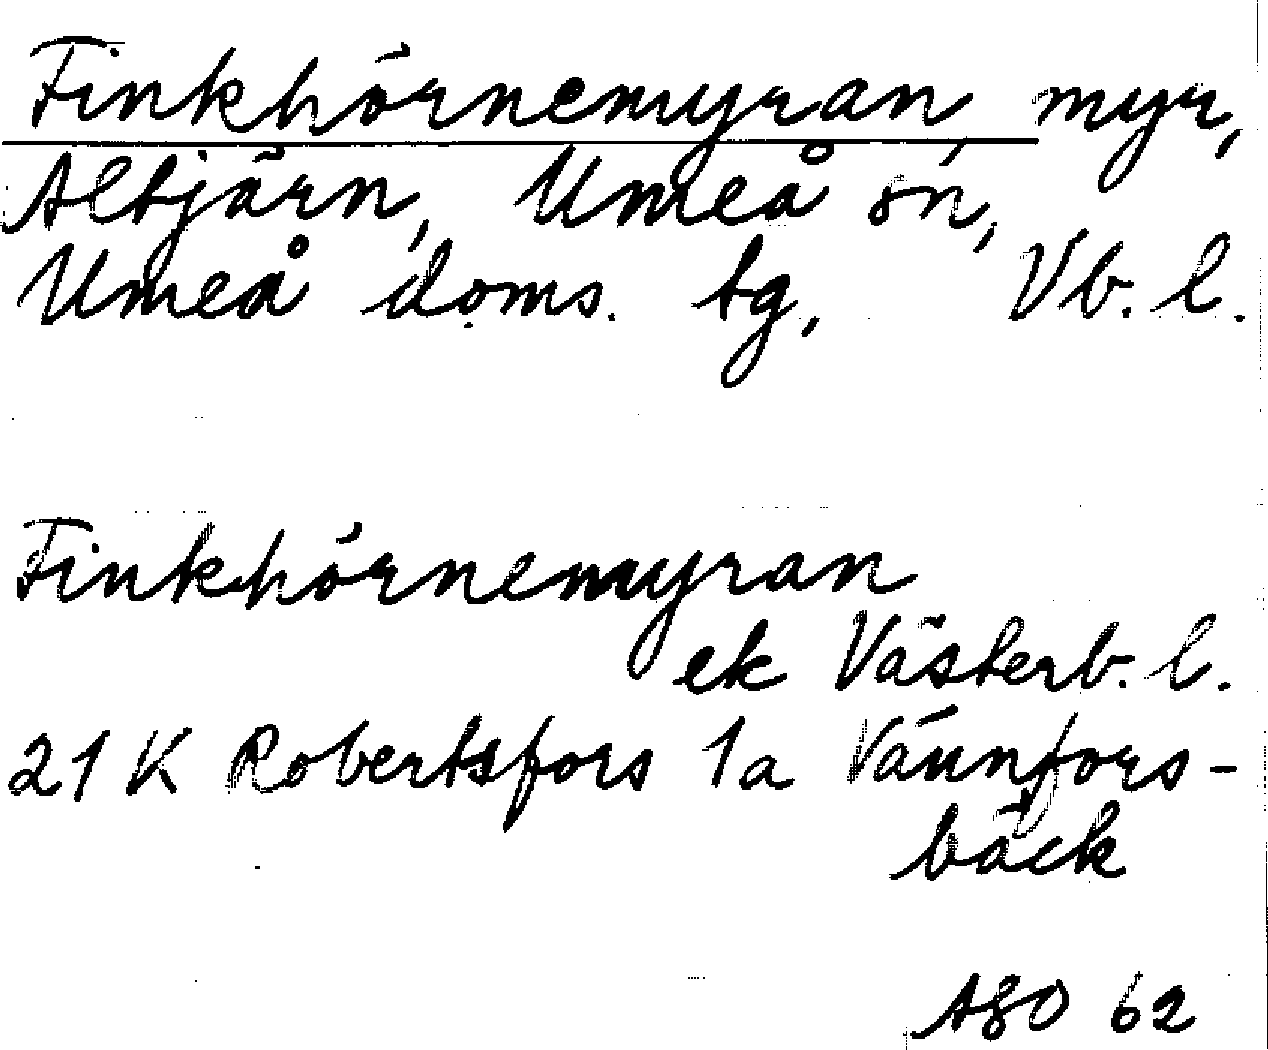 Finkhörnemyran, myr,
Altjärn, Umeå sn,
Umeå doms. tg, Vb. l.
Finkhörnemyran
ek Västerb. l.
21 K Robertsfors 1a Vännfors-
bäck
62